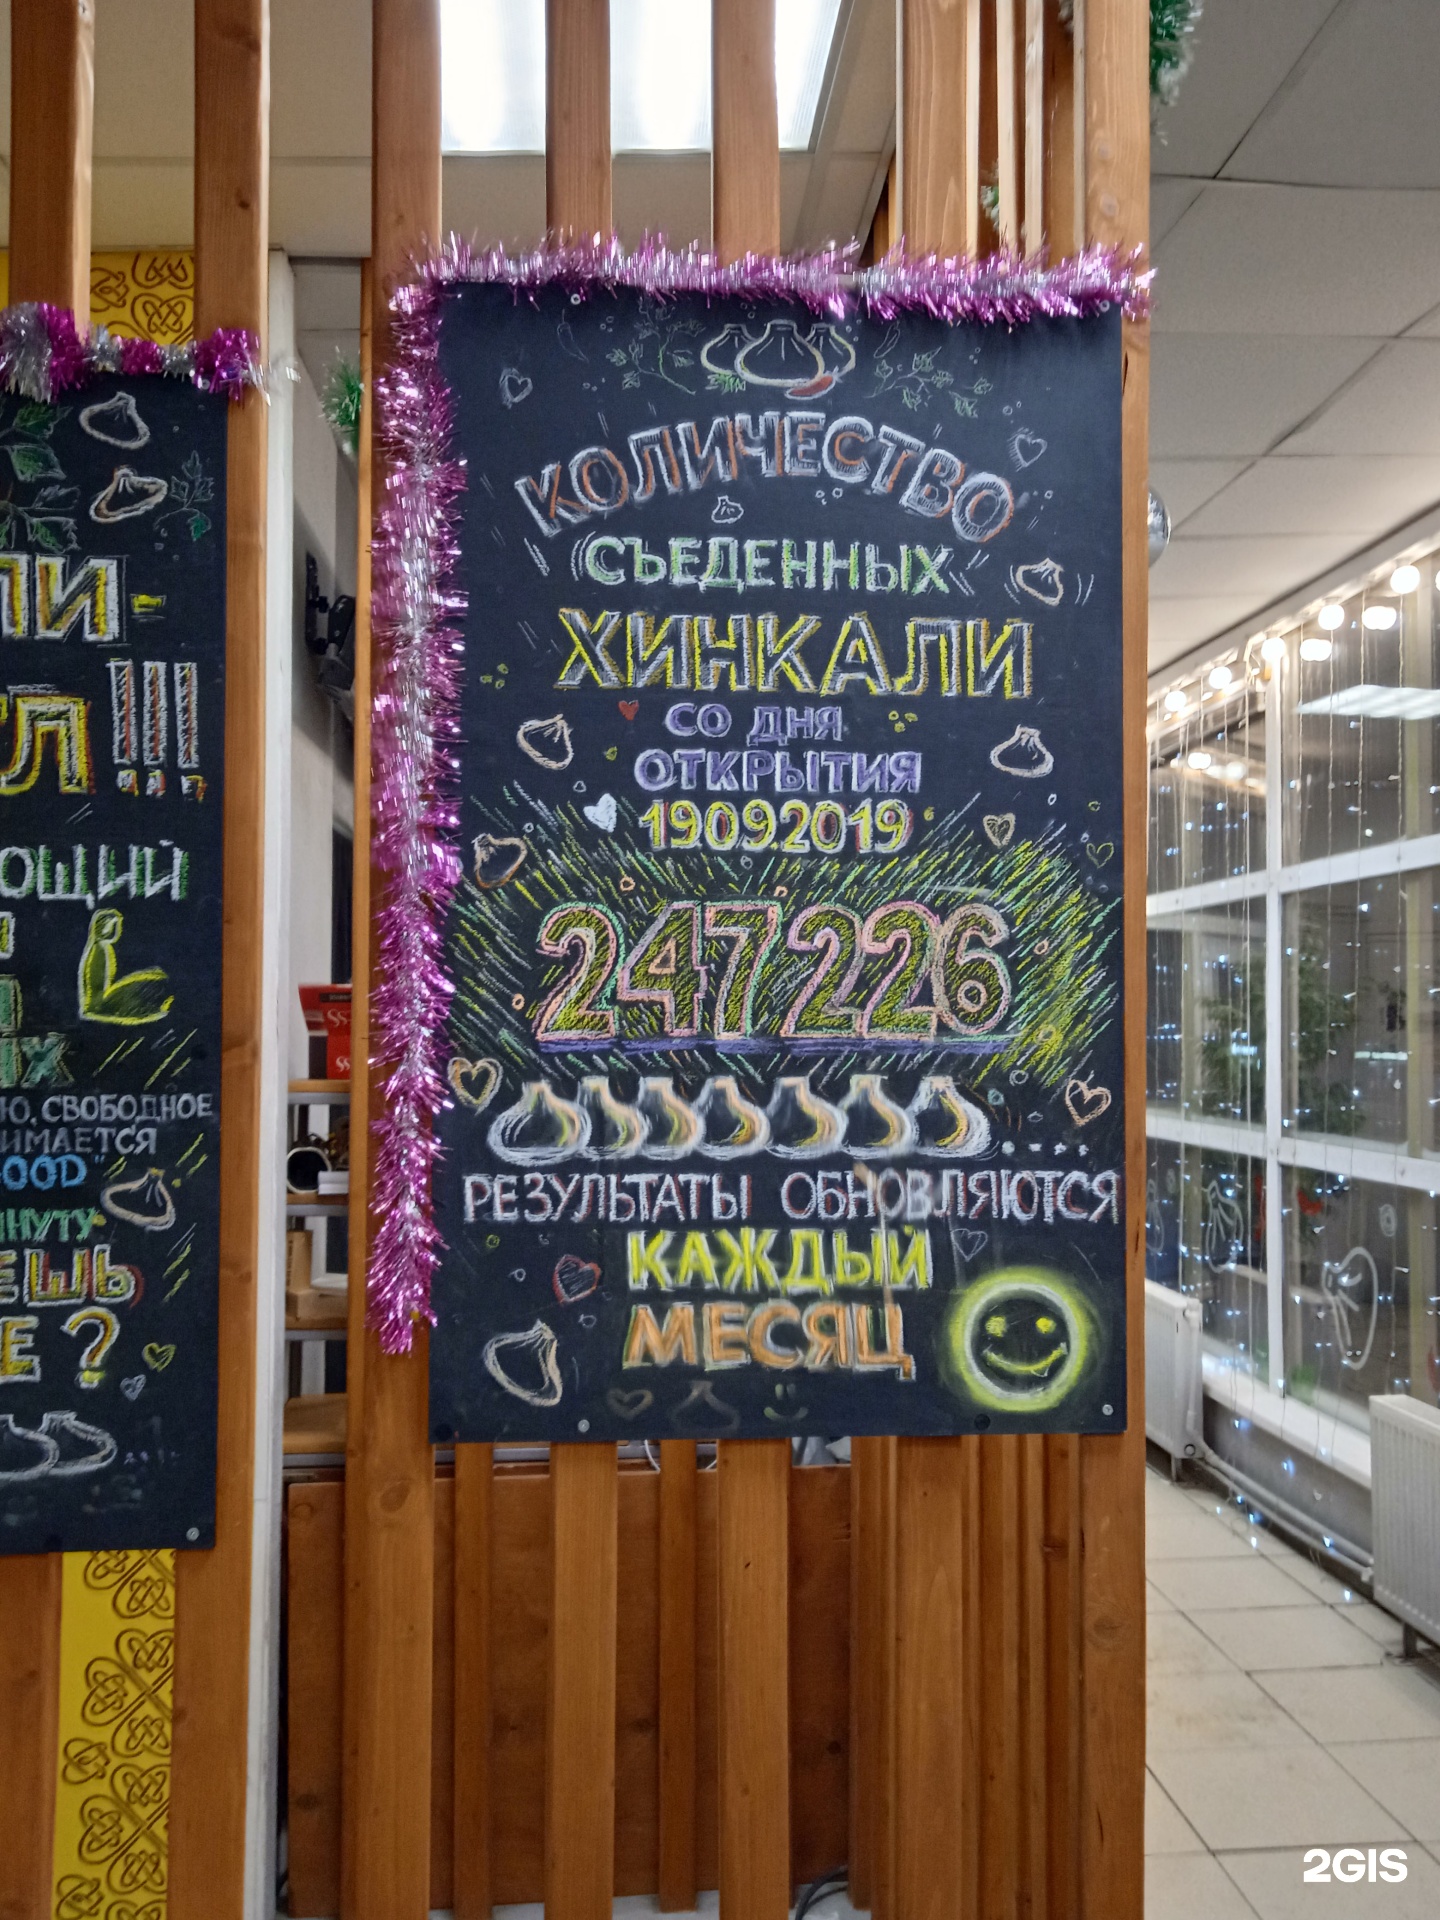 КОЛИЧЕСТВО
СЪЕДЕННЫХ
ХИНКАЛИ
СО ДНЯ
ОТКРЫТИЯ
19.09.2019
247226
РЕЗУЛЬТАТЫ ОБНОВЛЯЮТСЯ
КАЖДЫЙ
МЕСЯЦ
ЛИ-
!!!
ОЩИЙ
ЫХ
Ю, СВОБОДНОЕ
НИМАЕТСЯ
OOD"
ИНУТУ
ЕШЬ
Е?
2GIS